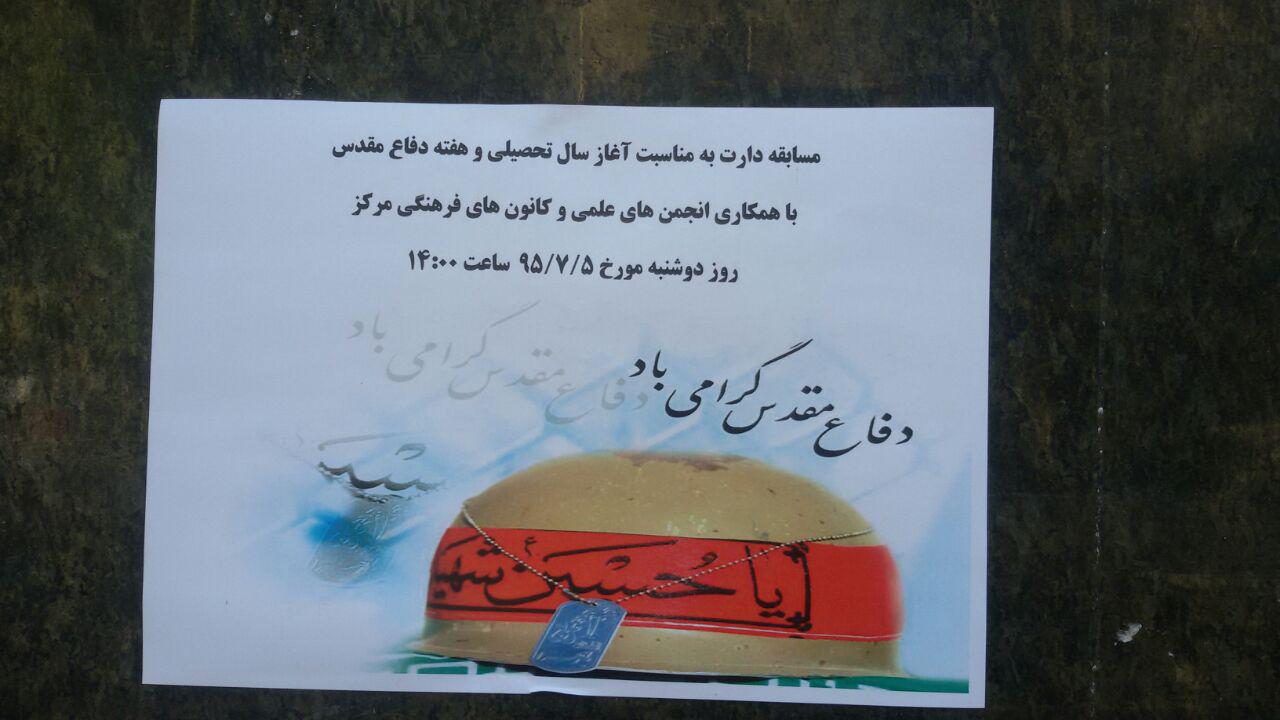 مسابقه دارت به مناسبت آغاز سال تحصیلی و هفته دفاع مقدس
با همکاری انجمن های علمی و کانون های فرهنگی مرکز
روز دوشنبه مورخ ۹۵/۷/۵ ساعت ۱۴:۰۰
دفاع مقدس گرامی باد
دفاع مقدس گرامی باد
یا حسین شهید